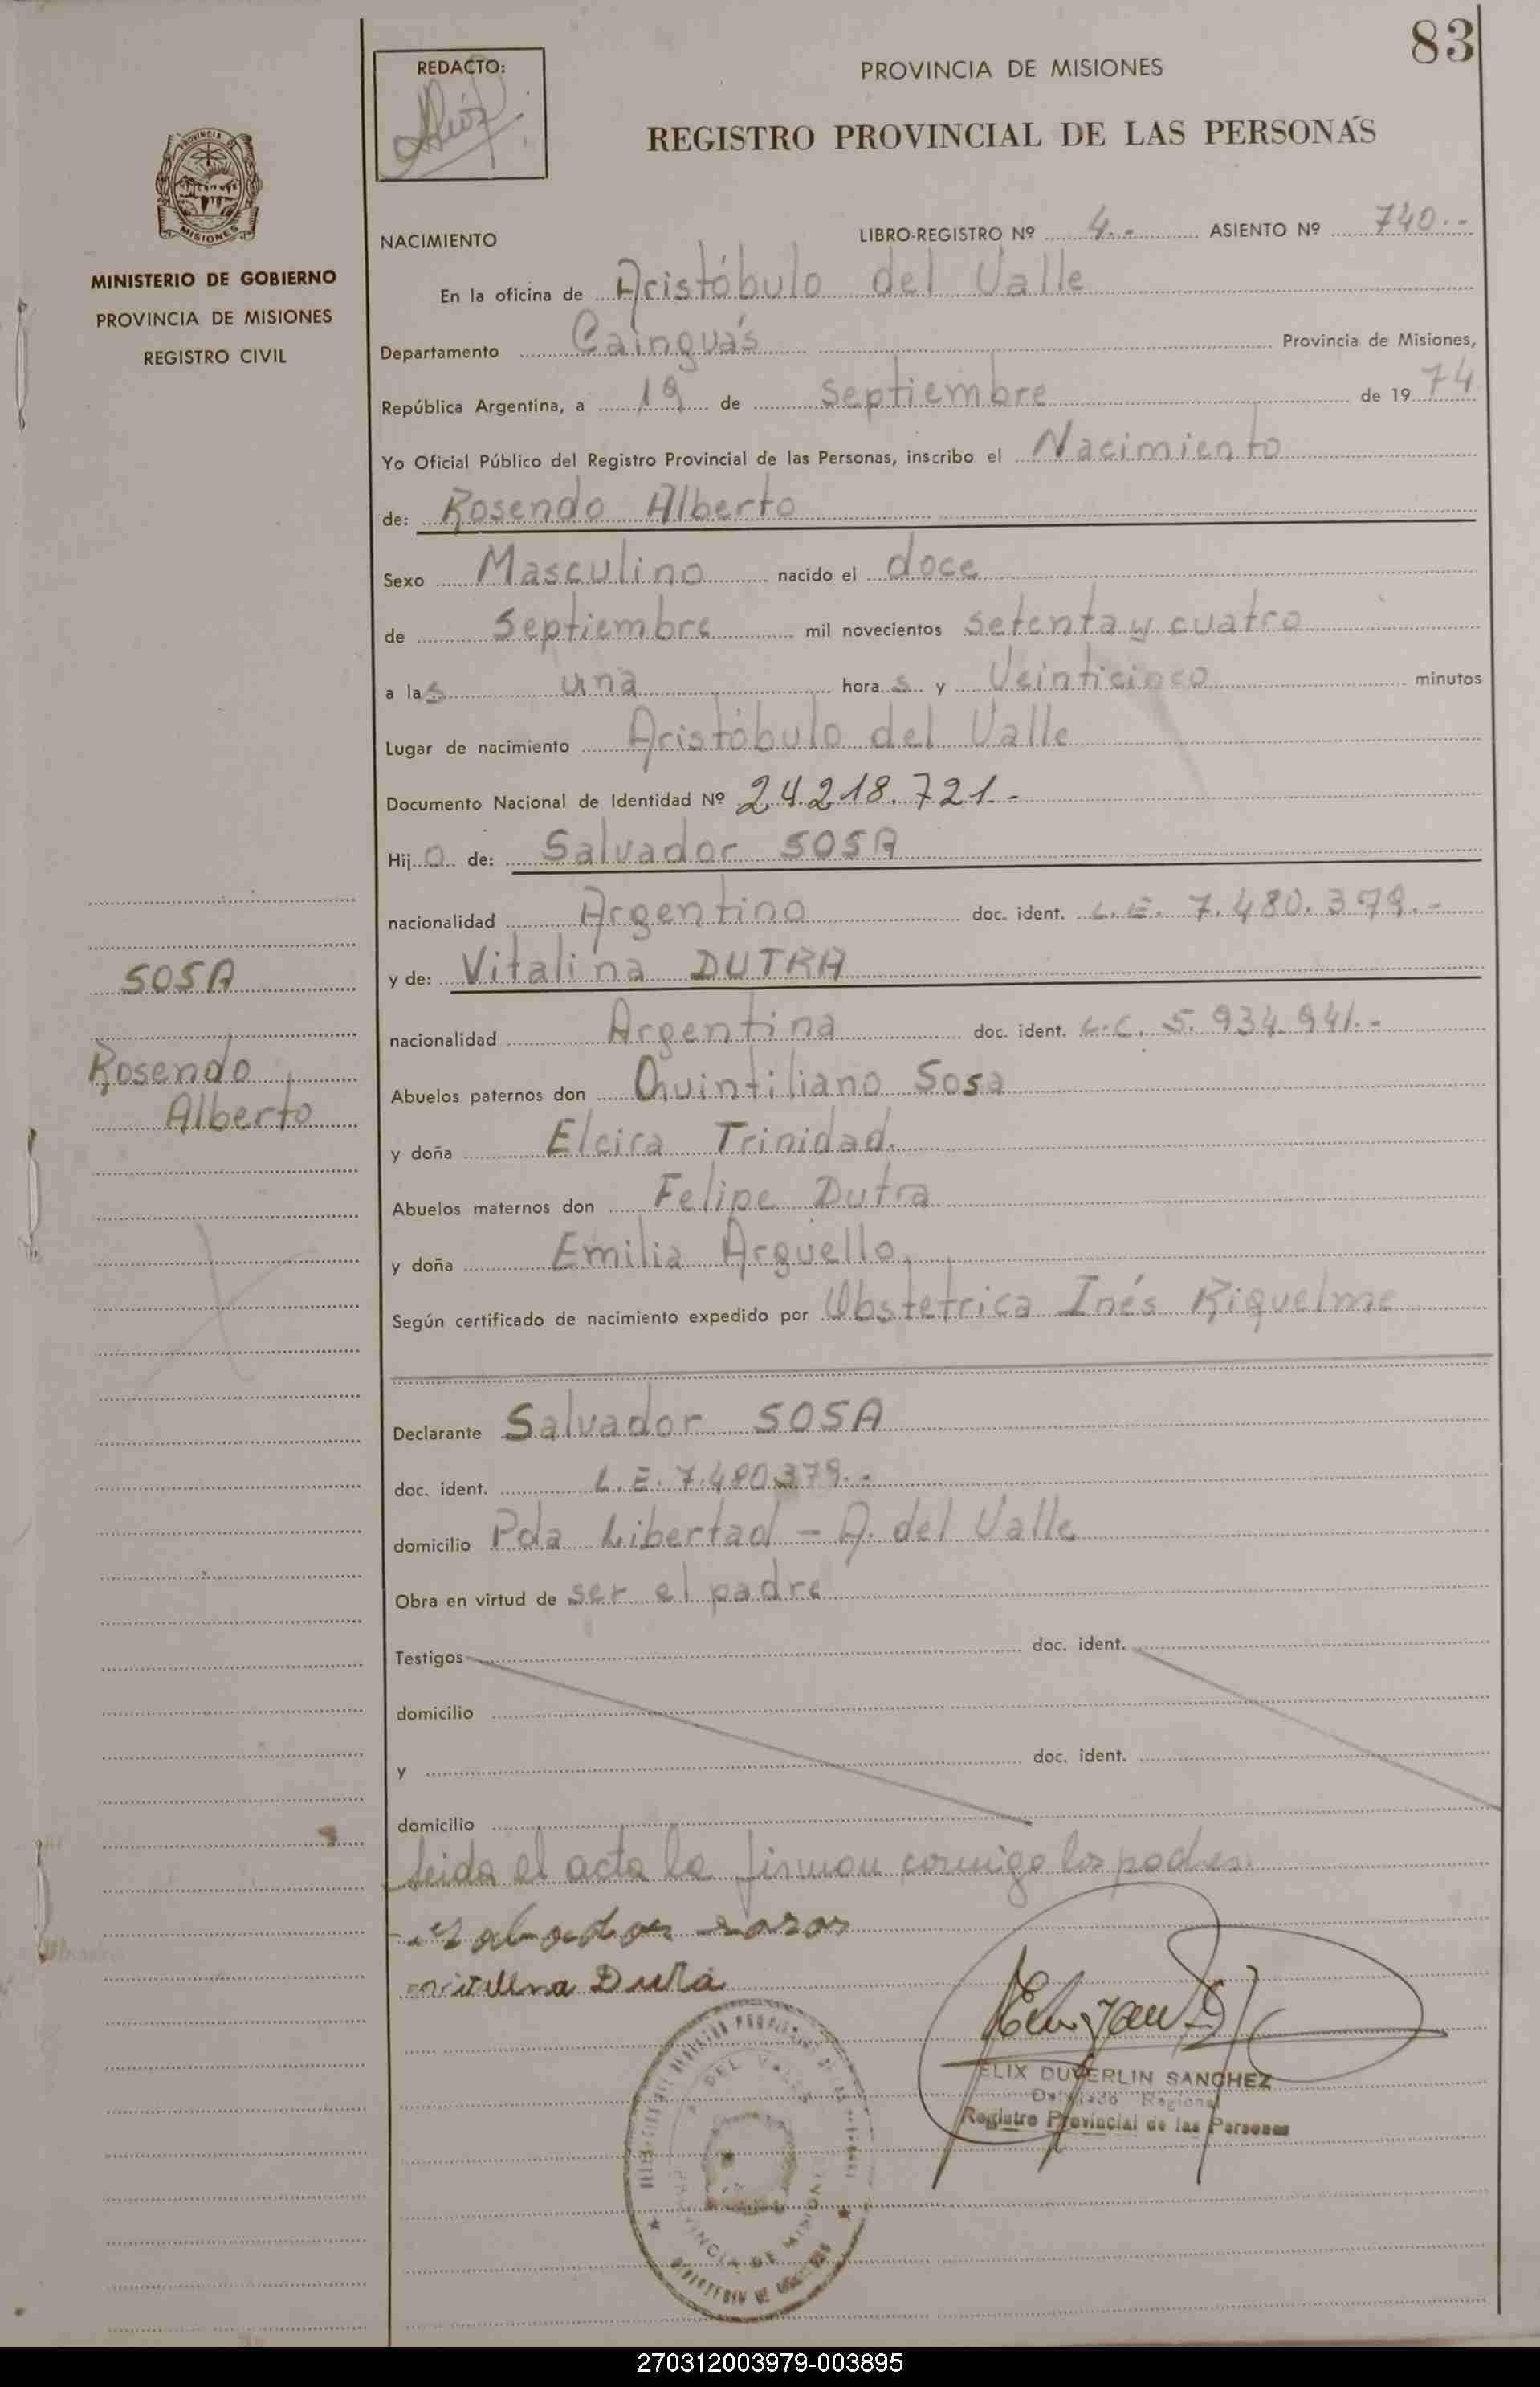 83
REDACTO:
PROVINCIA DE MISIONES
REGISTRO PROVINCIAL DE LAS PERSONAS
MISIONES
MINISTERIO DE GOBIERNO
PROVINCIA DE MISIONES
REGISTRO CIVIL
NACIMIENTO LIBRO-REGISTRO Nº 4.- ASIENTO Nº 740.-
En la oficina de Aristóbulo del Valle
Departamento Cainguás Provincia de Misiones,
República Argentina, a 19 de Septiembre de 1974
Yo Oficial Público del Registro Provincial de las Personas, inscribo el Nacimiento
de: Rosendo Alberto
Sexo Masculino nacido el doce
de Septiembre mil novecientos setenta y cuatro
a las una horas y Veinticinco minutos
Lugar de nacimiento Aristóbulo del Valle
Documento Nacional de Identidad Nº 24.218.721.-
Hijo de: Salvador SOSA
nacionalidad Argentino doc. ident. L.E. 7.480.379.-
y de: Vitalina DUTRA
nacionalidad Argentina doc. ident. L.C. 5.934.941.-
Abuelos paternos don Quintiliano Sosa
y doña Elcira Trinidad.
Abuelos maternos don Felipe Dutra
y doña Emilia Arguello.
Según certificado de nacimiento expedido por Obstetrica Inés Riquelme
SOSA
Rosendo
Alberto
Declarante Salvador SOSA
doc. ident. L.E. 7.480.379.-
domicilio Pda Libertad - A. del Valle
Obra en virtud de ser el padre
Testigos doc. ident.
domicilio
y doc. ident.
domicilio
Leida el acta la firman conmigo los padres.
ELIX DUVERLIN SANCHEZ
Delegado Regional
Registro Provincial de las Personas
DEL VALLE
PROVINCIA DE MISIONES
270312003979-003895